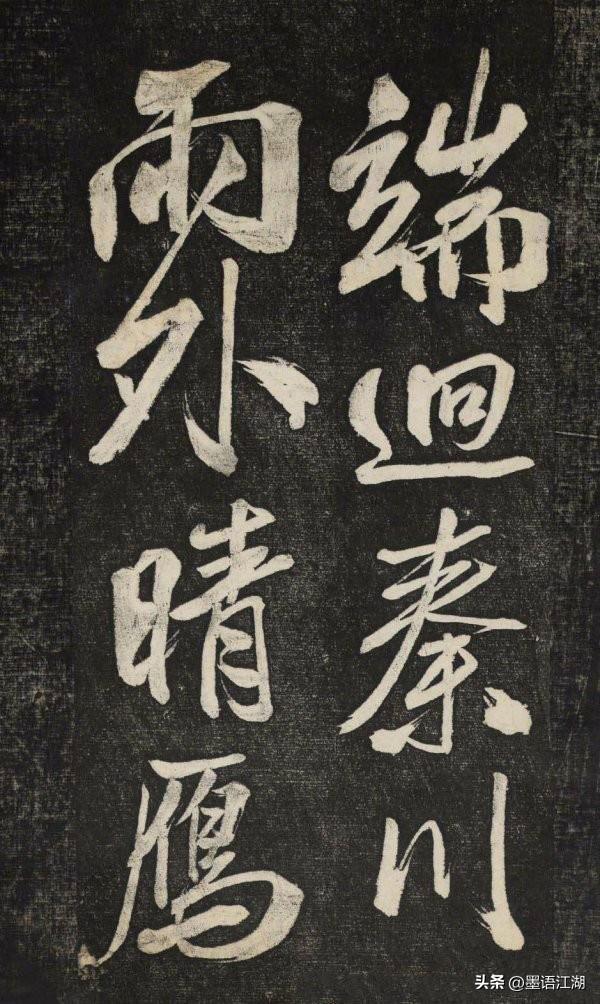 端迥秦川
雨外晴鴈
头条 @墨语江湖